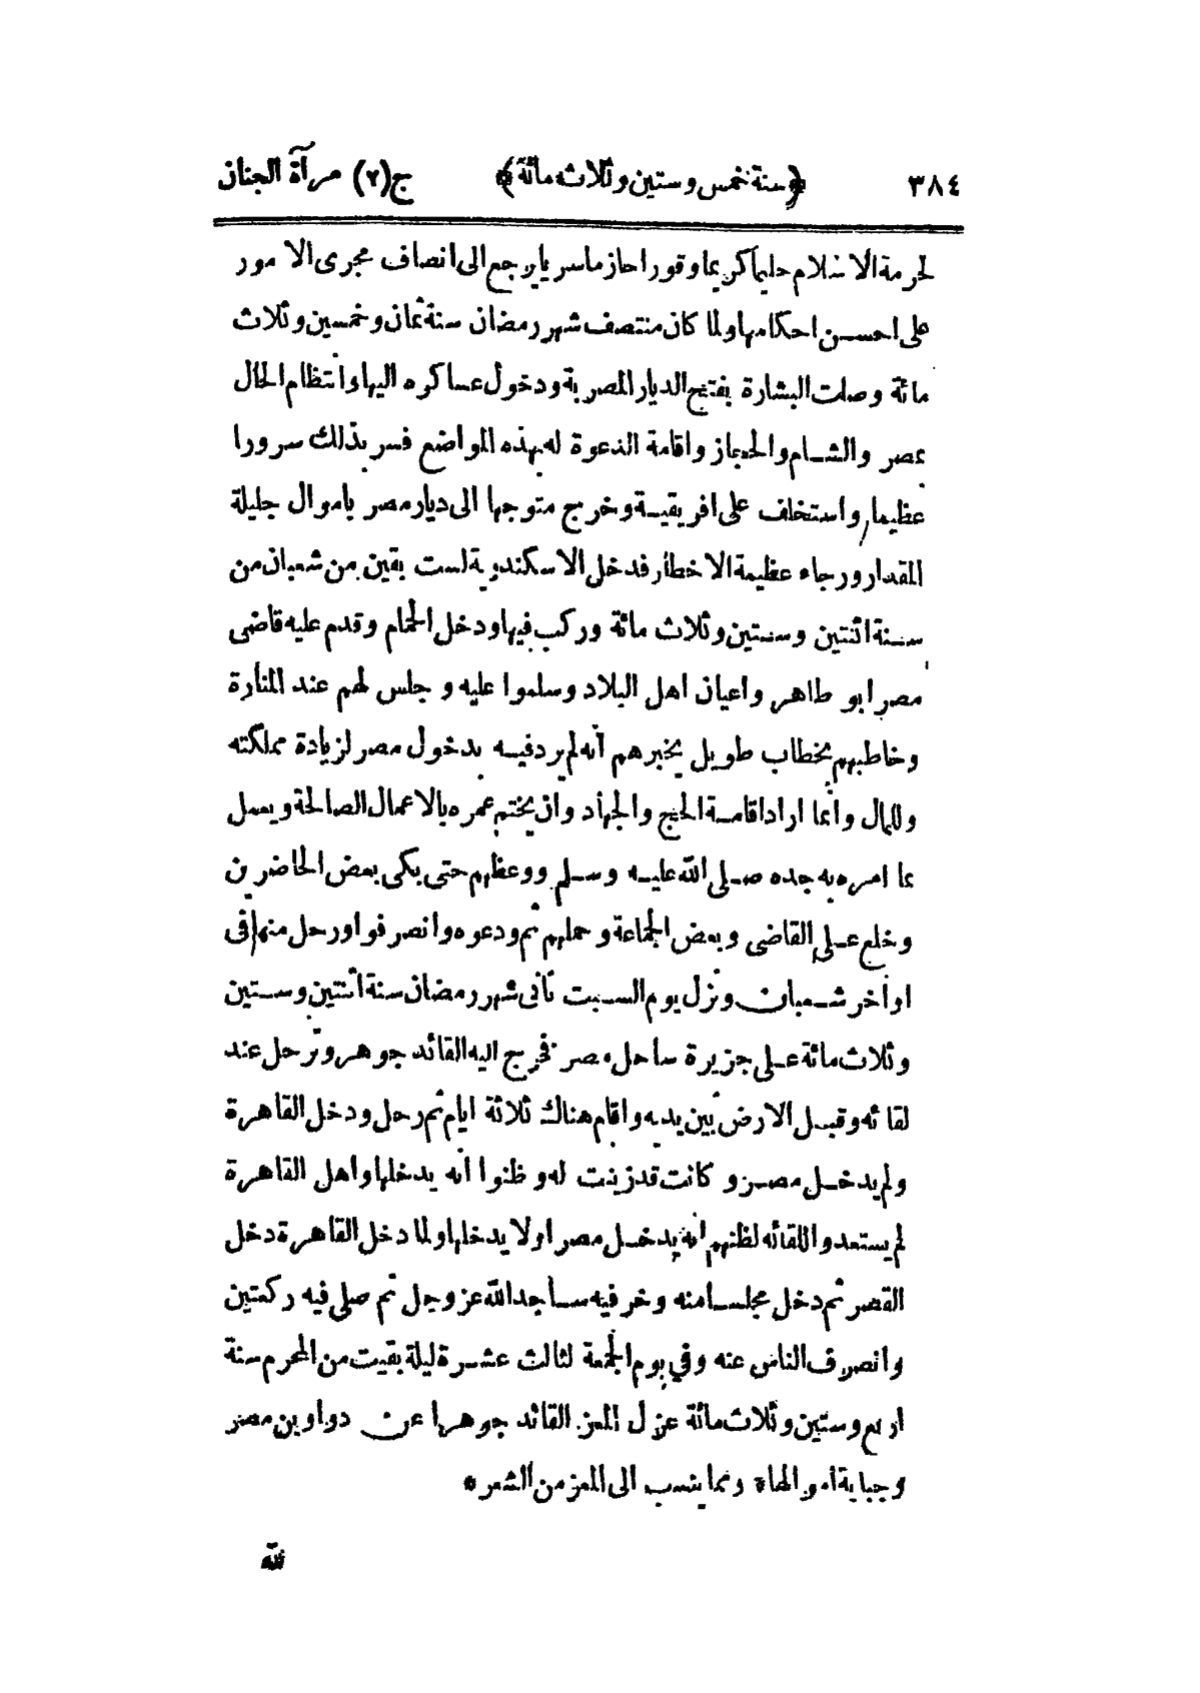 ٣٨٤ ﴿سنة خمس وستين وثلاث مائة﴾ ج(٢) مرآة الجنان
لحرمة الاسلام حليما كريما وقورا حازما سريا يرجع الى انصاف مجرى الامور
على احسن احكامها ولما كان منتصف شهر رمضان سنة ثمان وخمسين وثلاث
مائة وصلت البشارة بفتح الديار المصرية ودخول عساكره اليها وانتظام الحال
بمصر والشام والحجاز واقامة الدعوة له بهذه المواضع فسر بذلك سرورا
عظيما واستخلف على افريقية وخرج متوجها الى ديار مصر باموال جليلة
المقدار ورجاء عظيمة الاخطار فدخل الاسكندرية لست بقين من شعبان من
سنة اثنتين وستين وثلاث مائة وركب فيها ودخل الحمام وقدم عليه قاضى
مصر ابو طاهر واعيان اهل البلاد وسلموا عليه و جلس لهم عند المنارة
وخاطبهم بخطاب طويل يخبرهم أنه لم يرد فيه بدخول مصر لزيادة مملكته
وللمال وانما اراد اقامة الحج والجهاد وان يختم عمره بالاعمال الصالحة ويعمل
بما امره به جده صلى الله عليه وسلم ووعظهم حتى بكى بعض الحاضرين
وخلع على القاضى وبعض الجماعة وحملهم ثم ودعوه وانصرفوا ورحل منها فى
اواخر شعبان ونزل يوم السبت ثانى شهر رمضان سنة اثنتين وستين
وثلاث مائة على جزيرة ساحل مصر فخرج اليه القائد جوهر وترحل عند
لقائه وقبل الارض بين يديه واقام هناك ثلاثة ايام ثم رحل ودخل القاهرة
ولم يدخل مصر و كانت قد زينت له وظنوا أنه يدخلها واهل القاهرة
لم يستعدوا للقائه لظنهم انه يدخل مصر اولا يدخلها ولما دخل القاهرة دخل
القصر ثم دخل مجلسا منه وخر فيه ساجدا لله عز وجل ثم صلى فيه ركعتين
وانصرف الناس عنه وفي يوم الجمعة لثالث عشرة ليلة بقيت من المحرم سنة
اربع وستين وثلاث مائة عزل المعز القائد جوهرا عن دواوين مصر
وجباية اموالها ومما ينسب الى المعز من الشعر *
لله